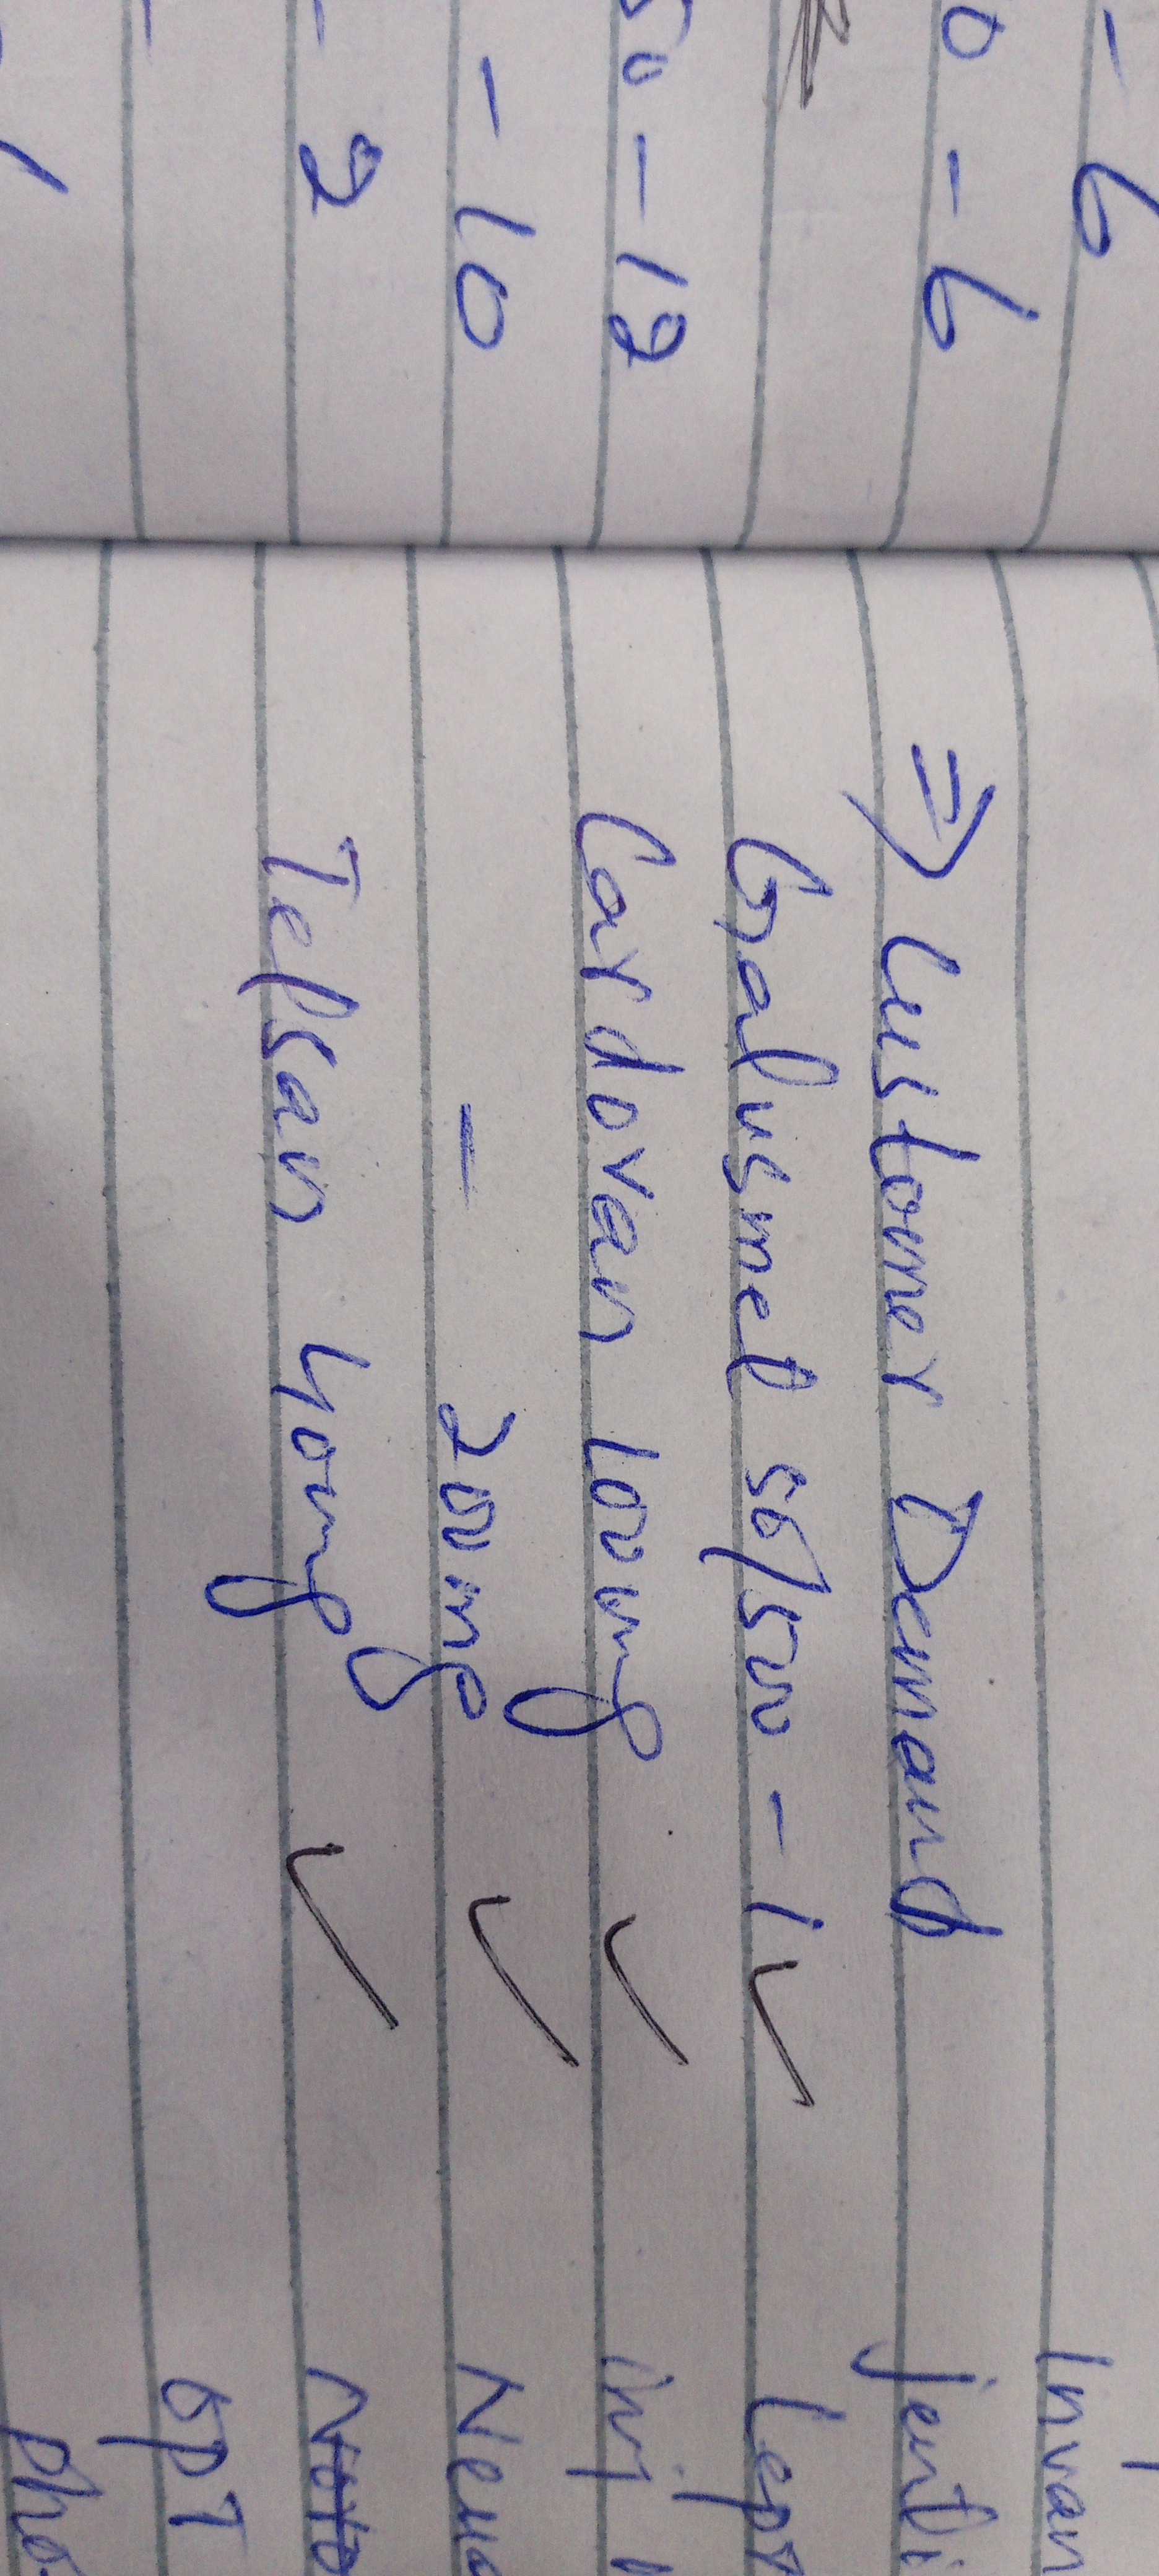 - 6
0 - 6
50 - 12
- 10
- 2
⇒ Customer Demand
Galusmet 50/500 - 1 ✓
Cardovan 100mg ✓
- 200mg ✓
Telsan 40mg ✓
Invan
jenti
Lept
inj
Neuo
opT
pho